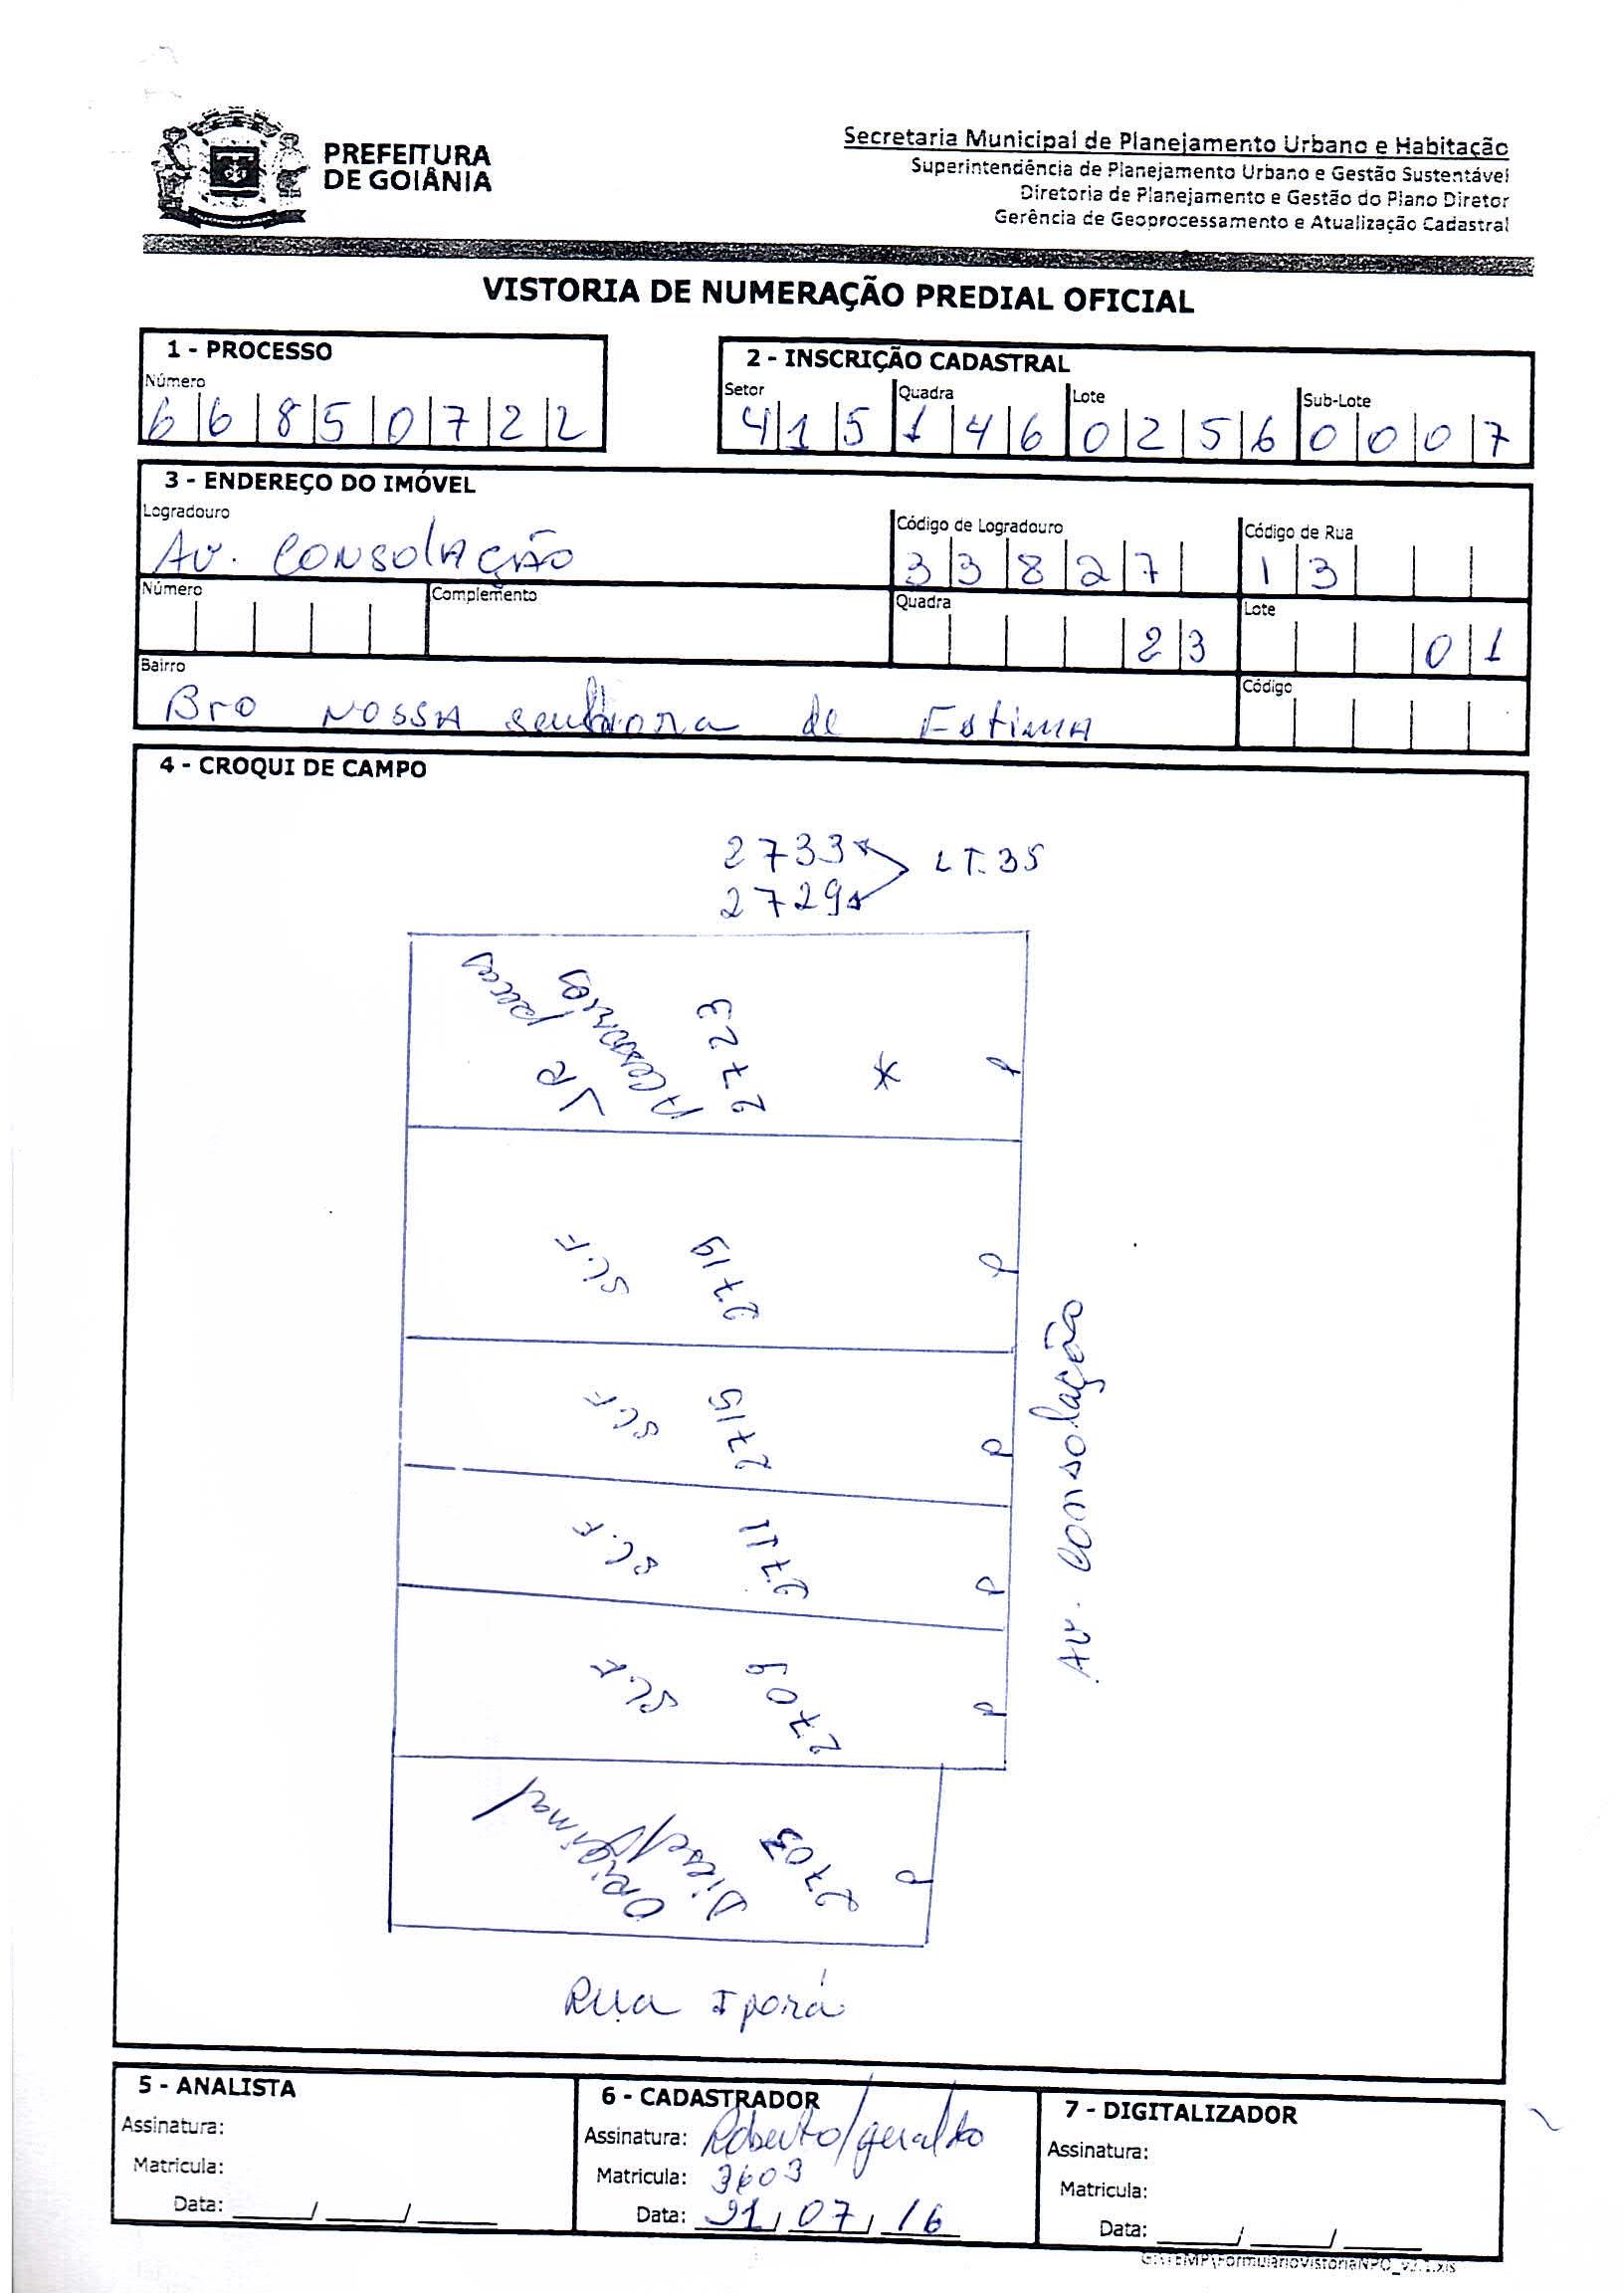 PREFEITURA
DE GOIÂNIA
Secretaria Municipal de Planejamento Urbano e Habitação
Superintendência de Planejamento Urbano e Gestão Sustentável
Diretoria de Planejamento e Gestão do Plano Diretor
Gerência de Geoprocessamento e Atualização Cadastral
VISTORIA DE NUMERAÇÃO PREDIAL OFICIAL
1 - PROCESSO
Número
6 6 8 5 0 7 2 2
2 - INSCRIÇÃO CADASTRAL
Setor Quadra Lote Sub-Lote
4 1 5 1 4 6 0 2 5 6 0 0 0 7
3 - ENDEREÇO DO IMÓVEL
Logradouro Código de Logradouro Código de Rua
Av. Consolação 3 3 8 2 7 1 3
Número Complemento Quadra Lote
2 3 0 1
Bairro Código
Bro NOSSA senhora de Fatima
4 - CROQUI DE CAMPO
2733
LT. 35
2729
VR peças
Acessorios
2723
*
SL.F
2719
SL.F
2715
SL.F
2711
SL.F
2709
Original
Diesel
2703
Av. Consolação
Rua Iporá
5 - ANALISTA
Assinatura:
Matricula:
Data: ____/____/____
6 - CADASTRADOR
Assinatura: Roberto/geraldo
Matricula: 3603
Data: 21/07/16
7 - DIGITALIZADOR
Assinatura:
Matricula:
Data: ____/____/____